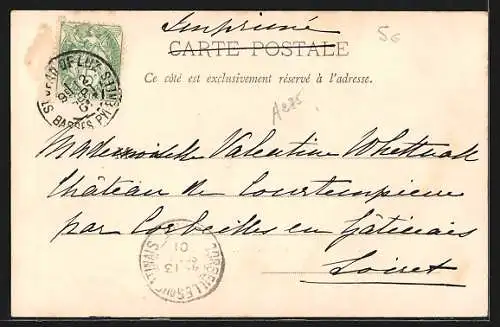 Imprimé
CARTE POSTALE
Ce côté est exclusivement réservé à l'adresse.
56
A225
ST JEAN-DE-LUZ
BASSES PYRÉNÉES
Mademoiselle Valentine Whettnall
Château de Courtempierre
par Corbeilles en Gâtinais
Loiret
CORBEILLES GATINAIS
13
01